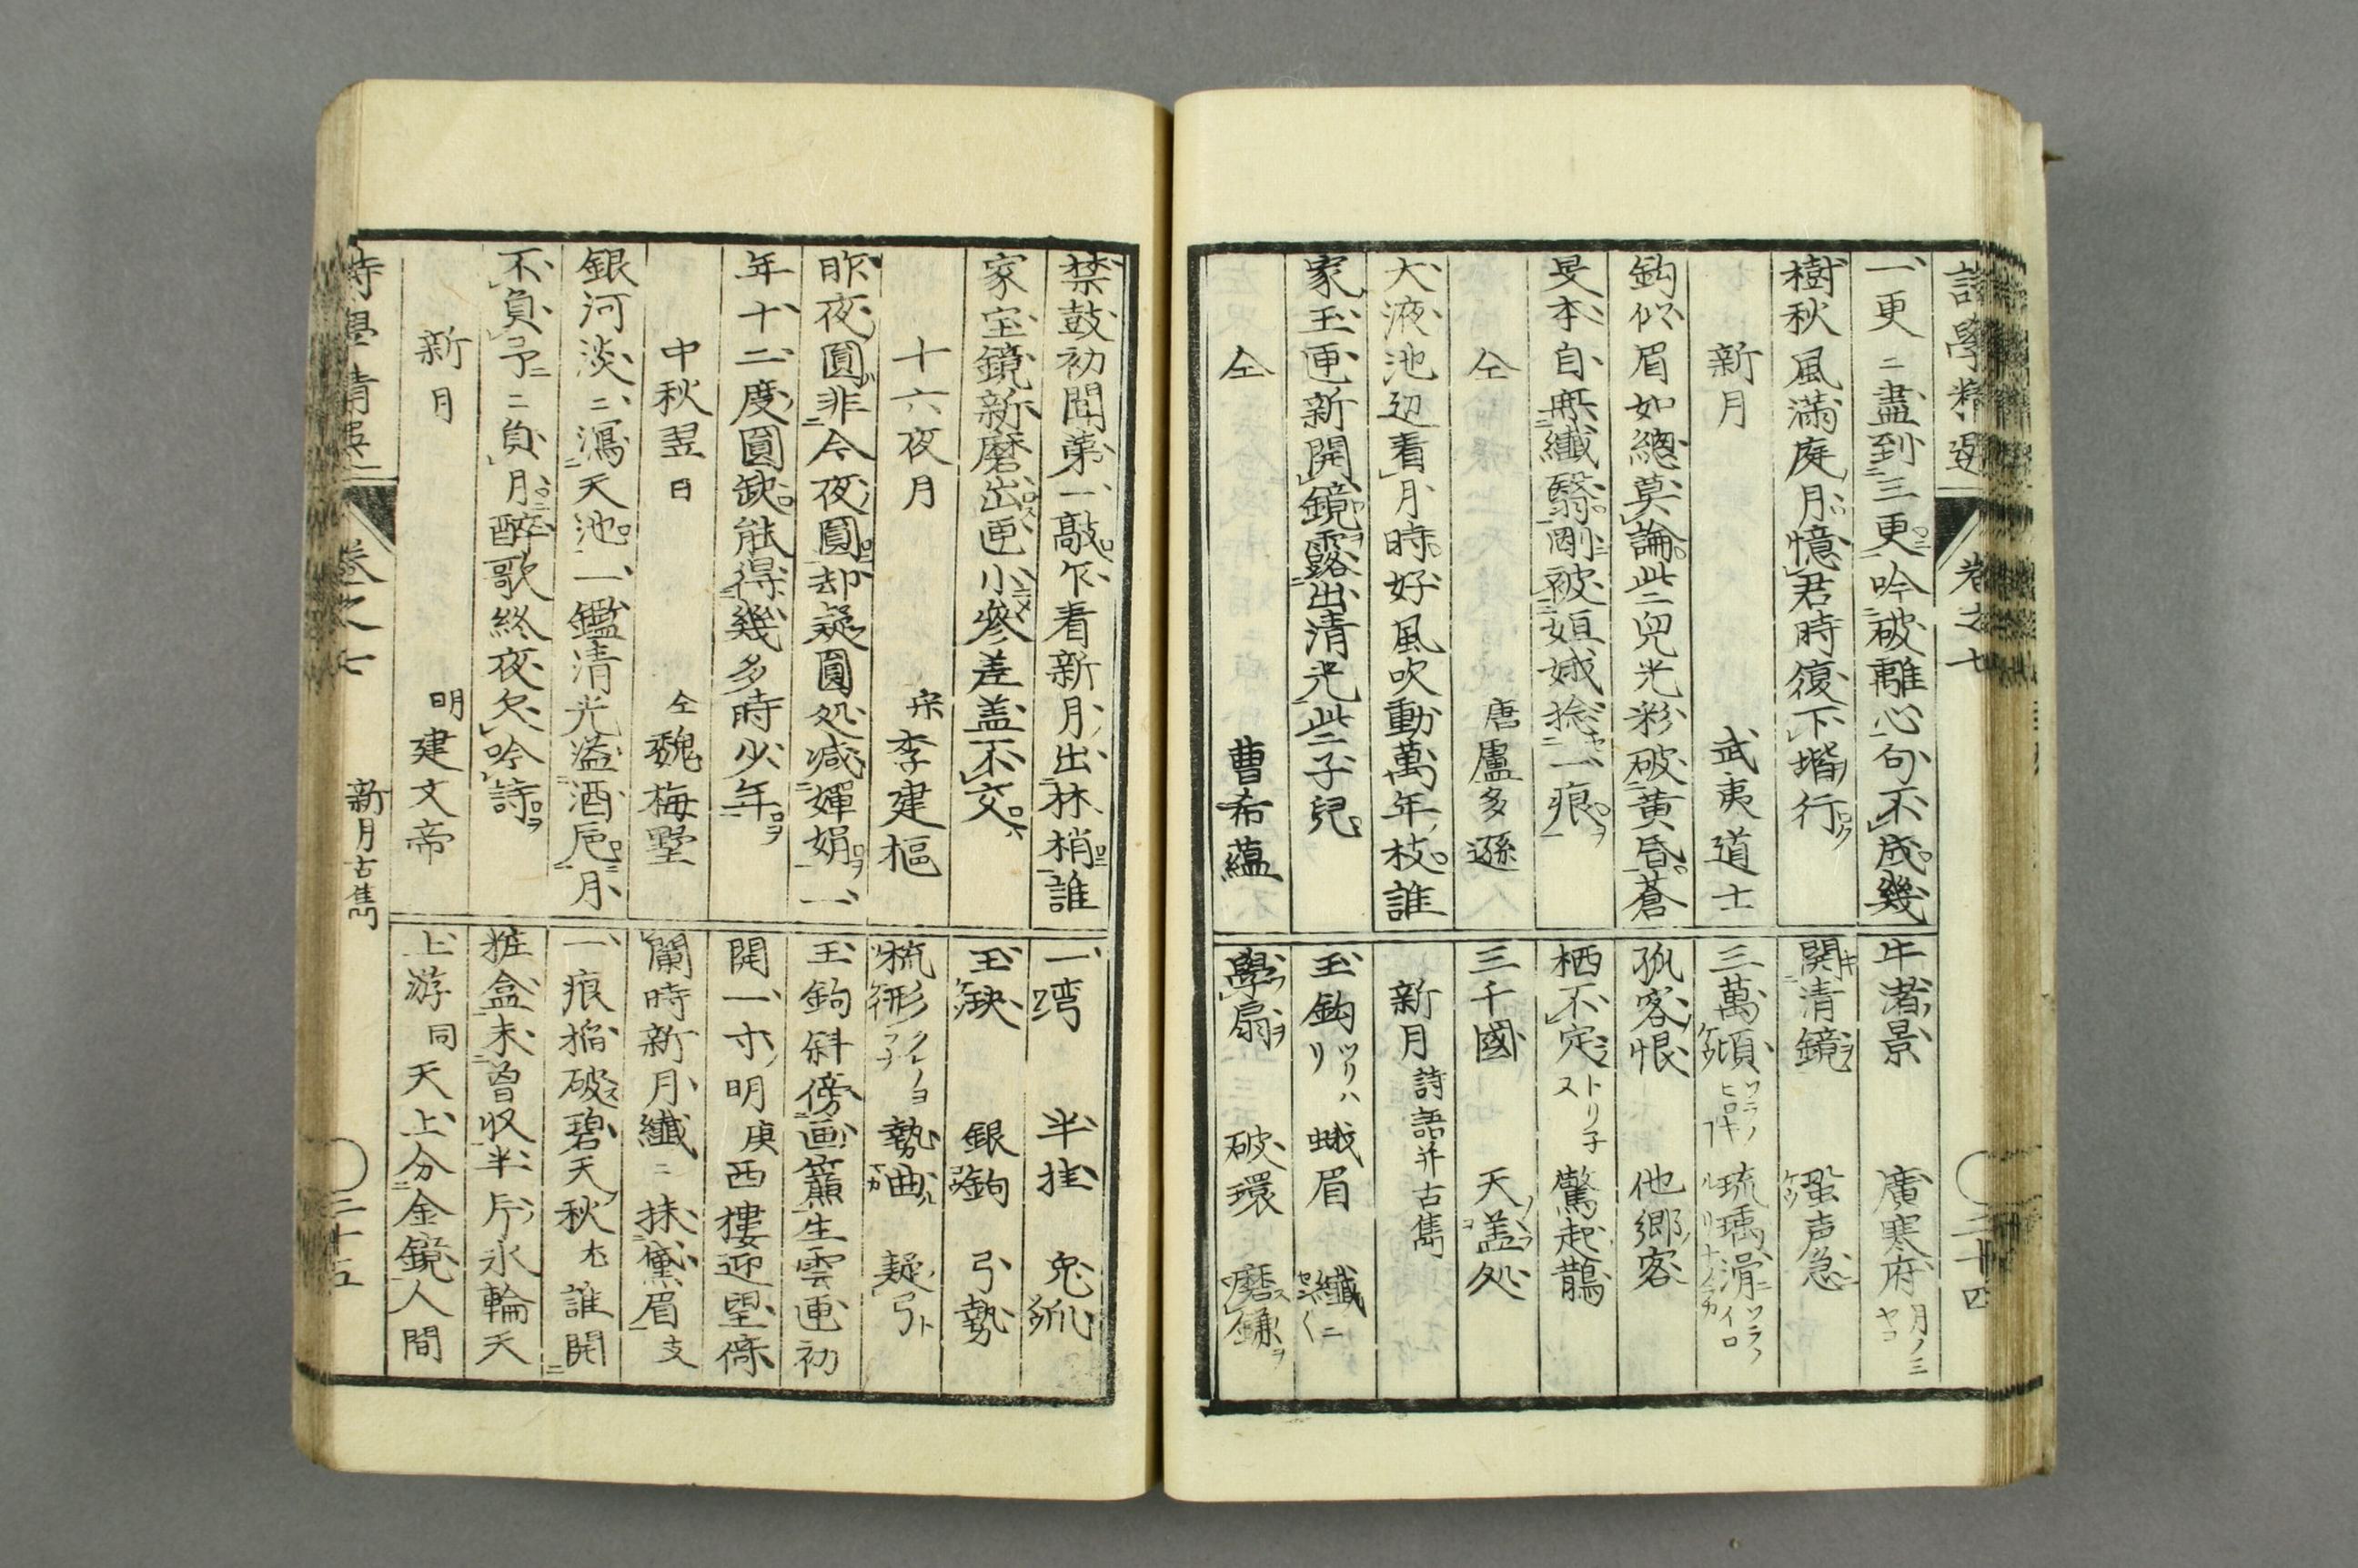 詩學精選 卷之七 二十四
一更二盡到三更吟破離心句不成幾
樹秋風滿庭月憶君時復下堦行
新月 武夷道士
鈎似眉如總莫論些二兒光彩破黄昏蒼
旻本自無纖翳剛被姮娥捻一痕
仝 唐盧多遜
大液池辺看月時好風吹動萬年枝誰
家玉匣新開鏡露出清光些二子兒
仝 曹希蘊
牛渚景 廣寒府月ノミヤコ
開清鏡 蛩声急
三萬頃 琉璃滑
孤客恨 他郷客
栖不定 驚起鵲
三千國 天盖処
新月 詩語并古雋
玉鈎 蛾眉 纖二
學扇 破環 磨鎌
禁鼓初聞第一敲乍看新月出林梢誰
家宝鏡新磨出匣小參差盖不交
十六夜月 宋李建樞
昨夜圓非今夜圓却疑圓処减嬋娟一
年十二度圓缺能得幾多時少年
中秋翌日 仝魏梅墅
銀河淡二瀉天池一鑑清光溢酒巵月
不負予二負月醉歌終夜欠吟詩
新月 明建文帝
一湾 半挂 兔孤
玉缺 銀鉤 弓勢
梳形 勢曲 疑弓
玉鉤斜傍画簾生雲匣初
開一寸明庚西樓迎望倚
闌時新月纖二抹黛眉支
一痕搯破碧天秋尤誰開
粧盒未曽収半片氷輪天
上游同天上分金鏡人間
詩學精選 卷之七 新月古雋 二十五